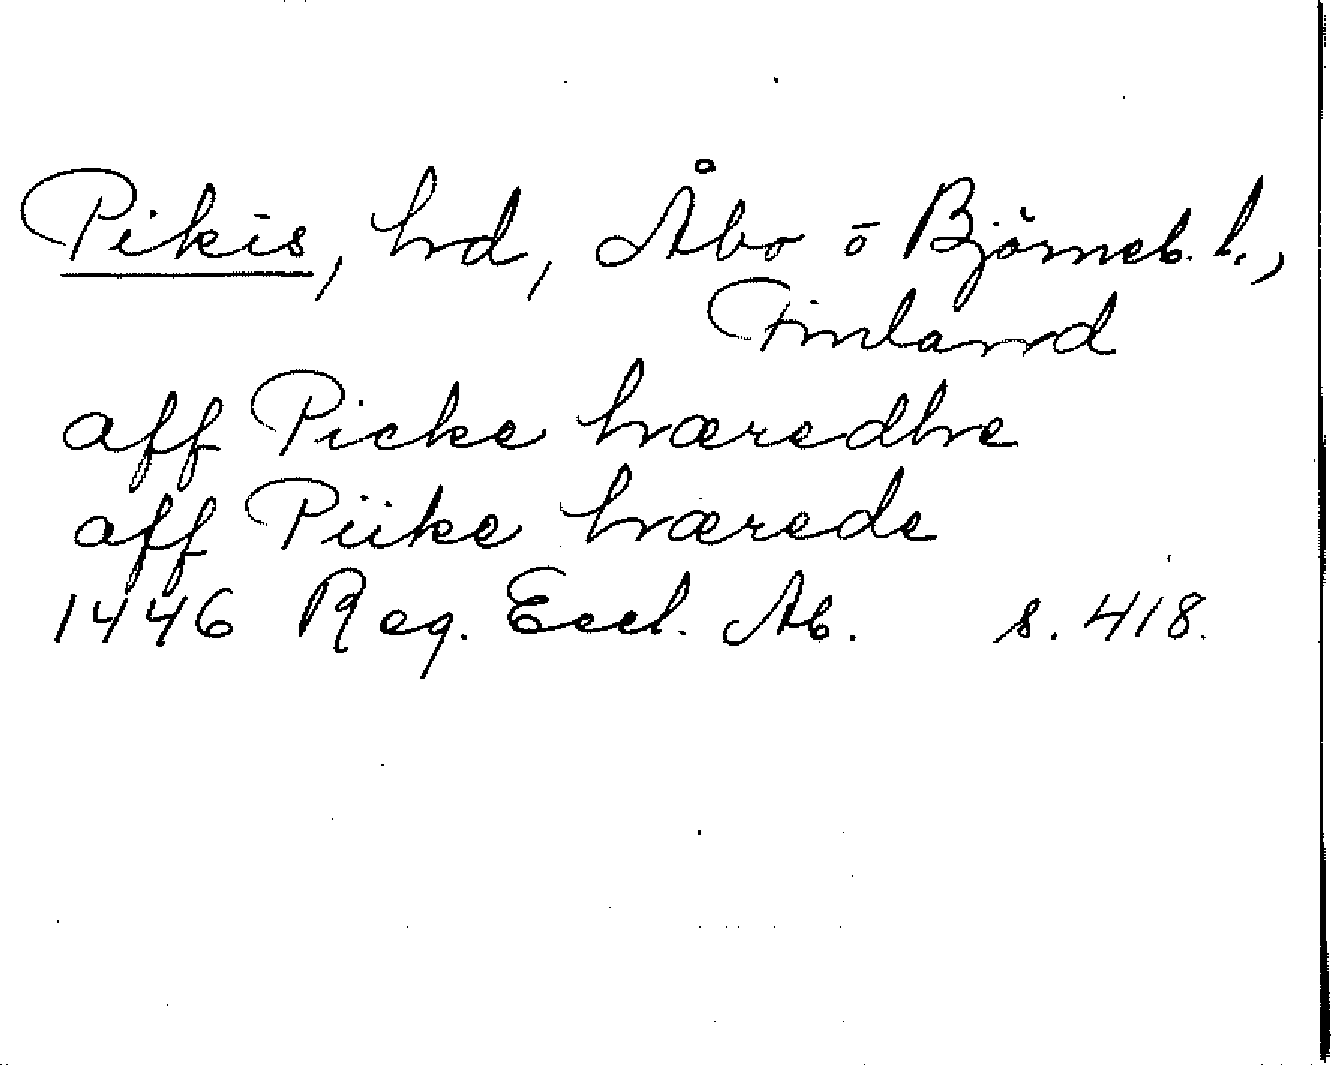 Pikis, hd, Åbo o Björneb. l.,
Finland
aff Picke hæredhe
aff Piike hærede
1446 Reg. Eccl. Ab. s. 418.